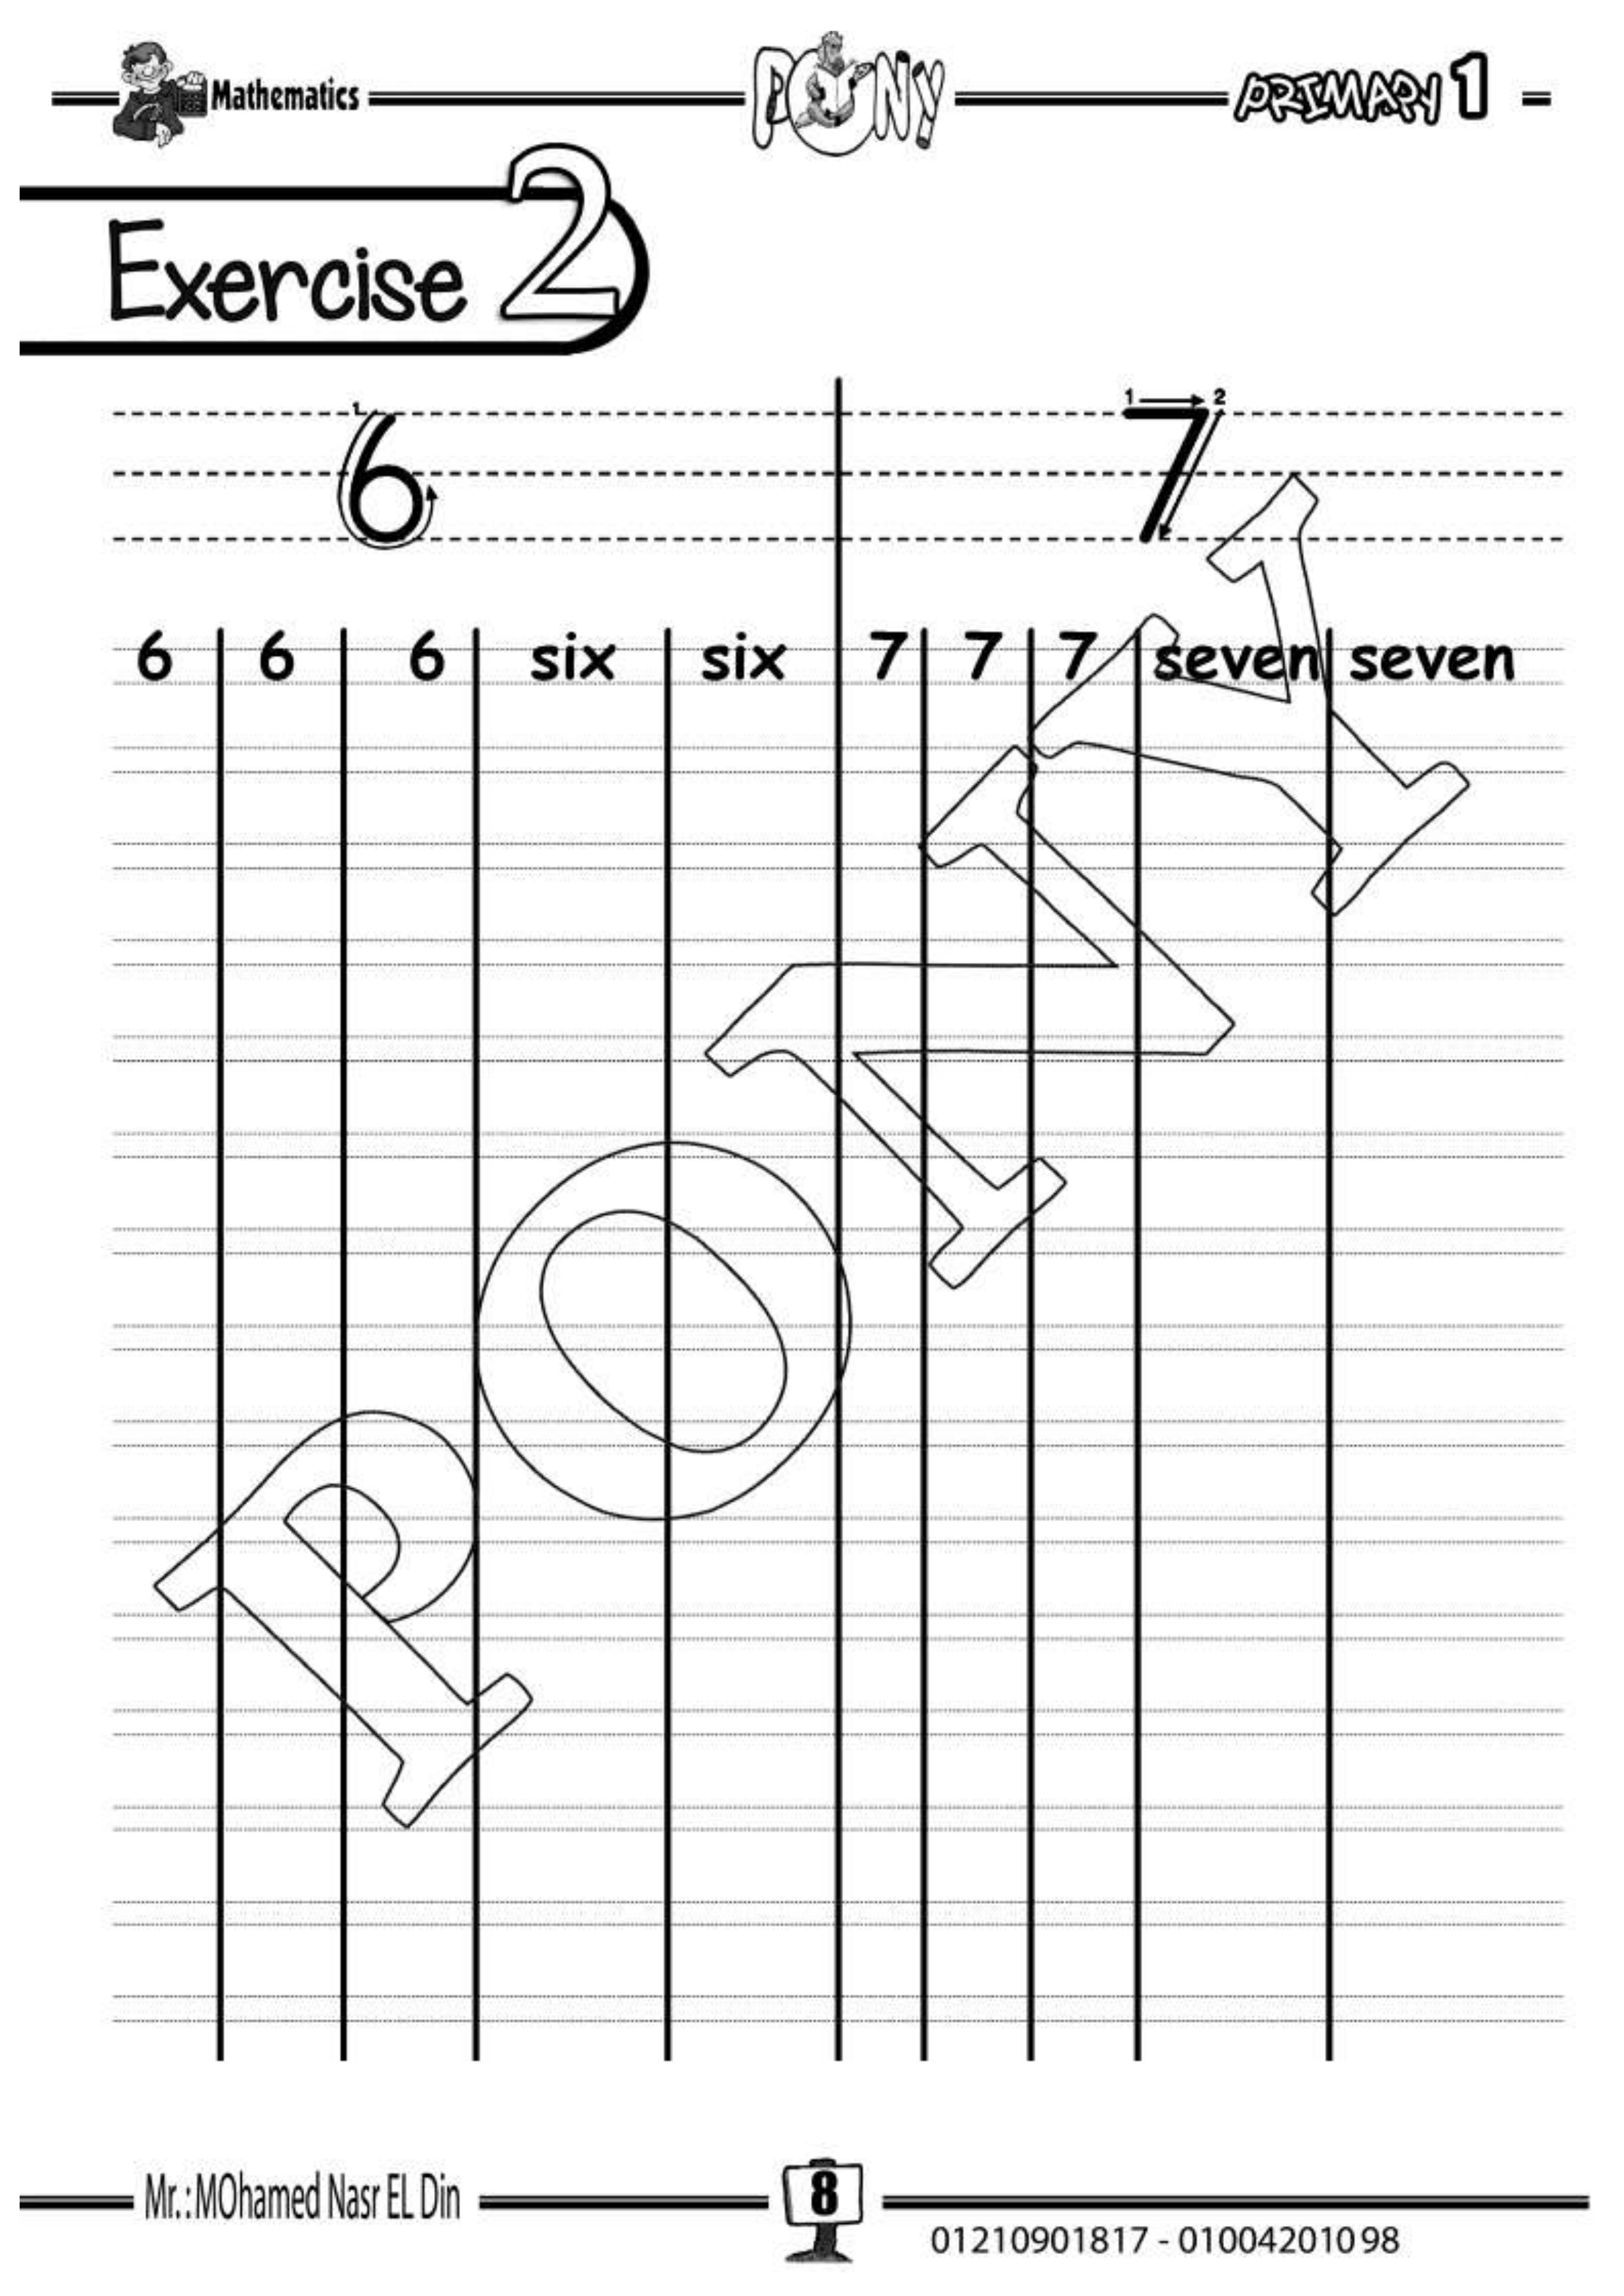 Mathematics PONY PRIMARY 1
Exercise 2
6 1 7 1 2
6 6 6 six six 7 7 7 seven seven
PONY
Mr.:MOhamed Nasr EL Din 8
01210901817 - 01004201098